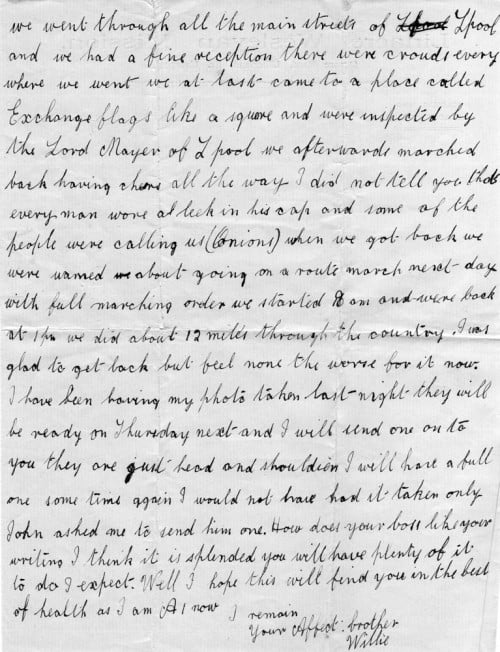 we went through all the main streets of Lpool Lpool
and we had a fine reception there were crouds every
where we went we at last came to a place called
Exchange flags like a square and were inspected by
the Lord Mayer of Lpool we afterwards marched
back having chers all the way I did not tell you that
every man wore a leek in his cap and some of the
people were calling us (Onions) when we got back we
were warned we about going on a route march next day
with full marching order we started 8 am and were back
at 1 pm we did about 12 miles through the country. I was
glad to get back but feel none the worse for it now.
I have been having my photo taken last night they will
be ready on Thursday next and I will send one on to
you they are just head and shouldien I will have a full
one some time again I would not have had it taken only
John asked me to send him one. How does your boss like your
writing I think it is splended you will have plenty of it
to do I expect. Well I hope this will find you in the best
of health as I am A1 now I remain
Your Affect: brother
Willie